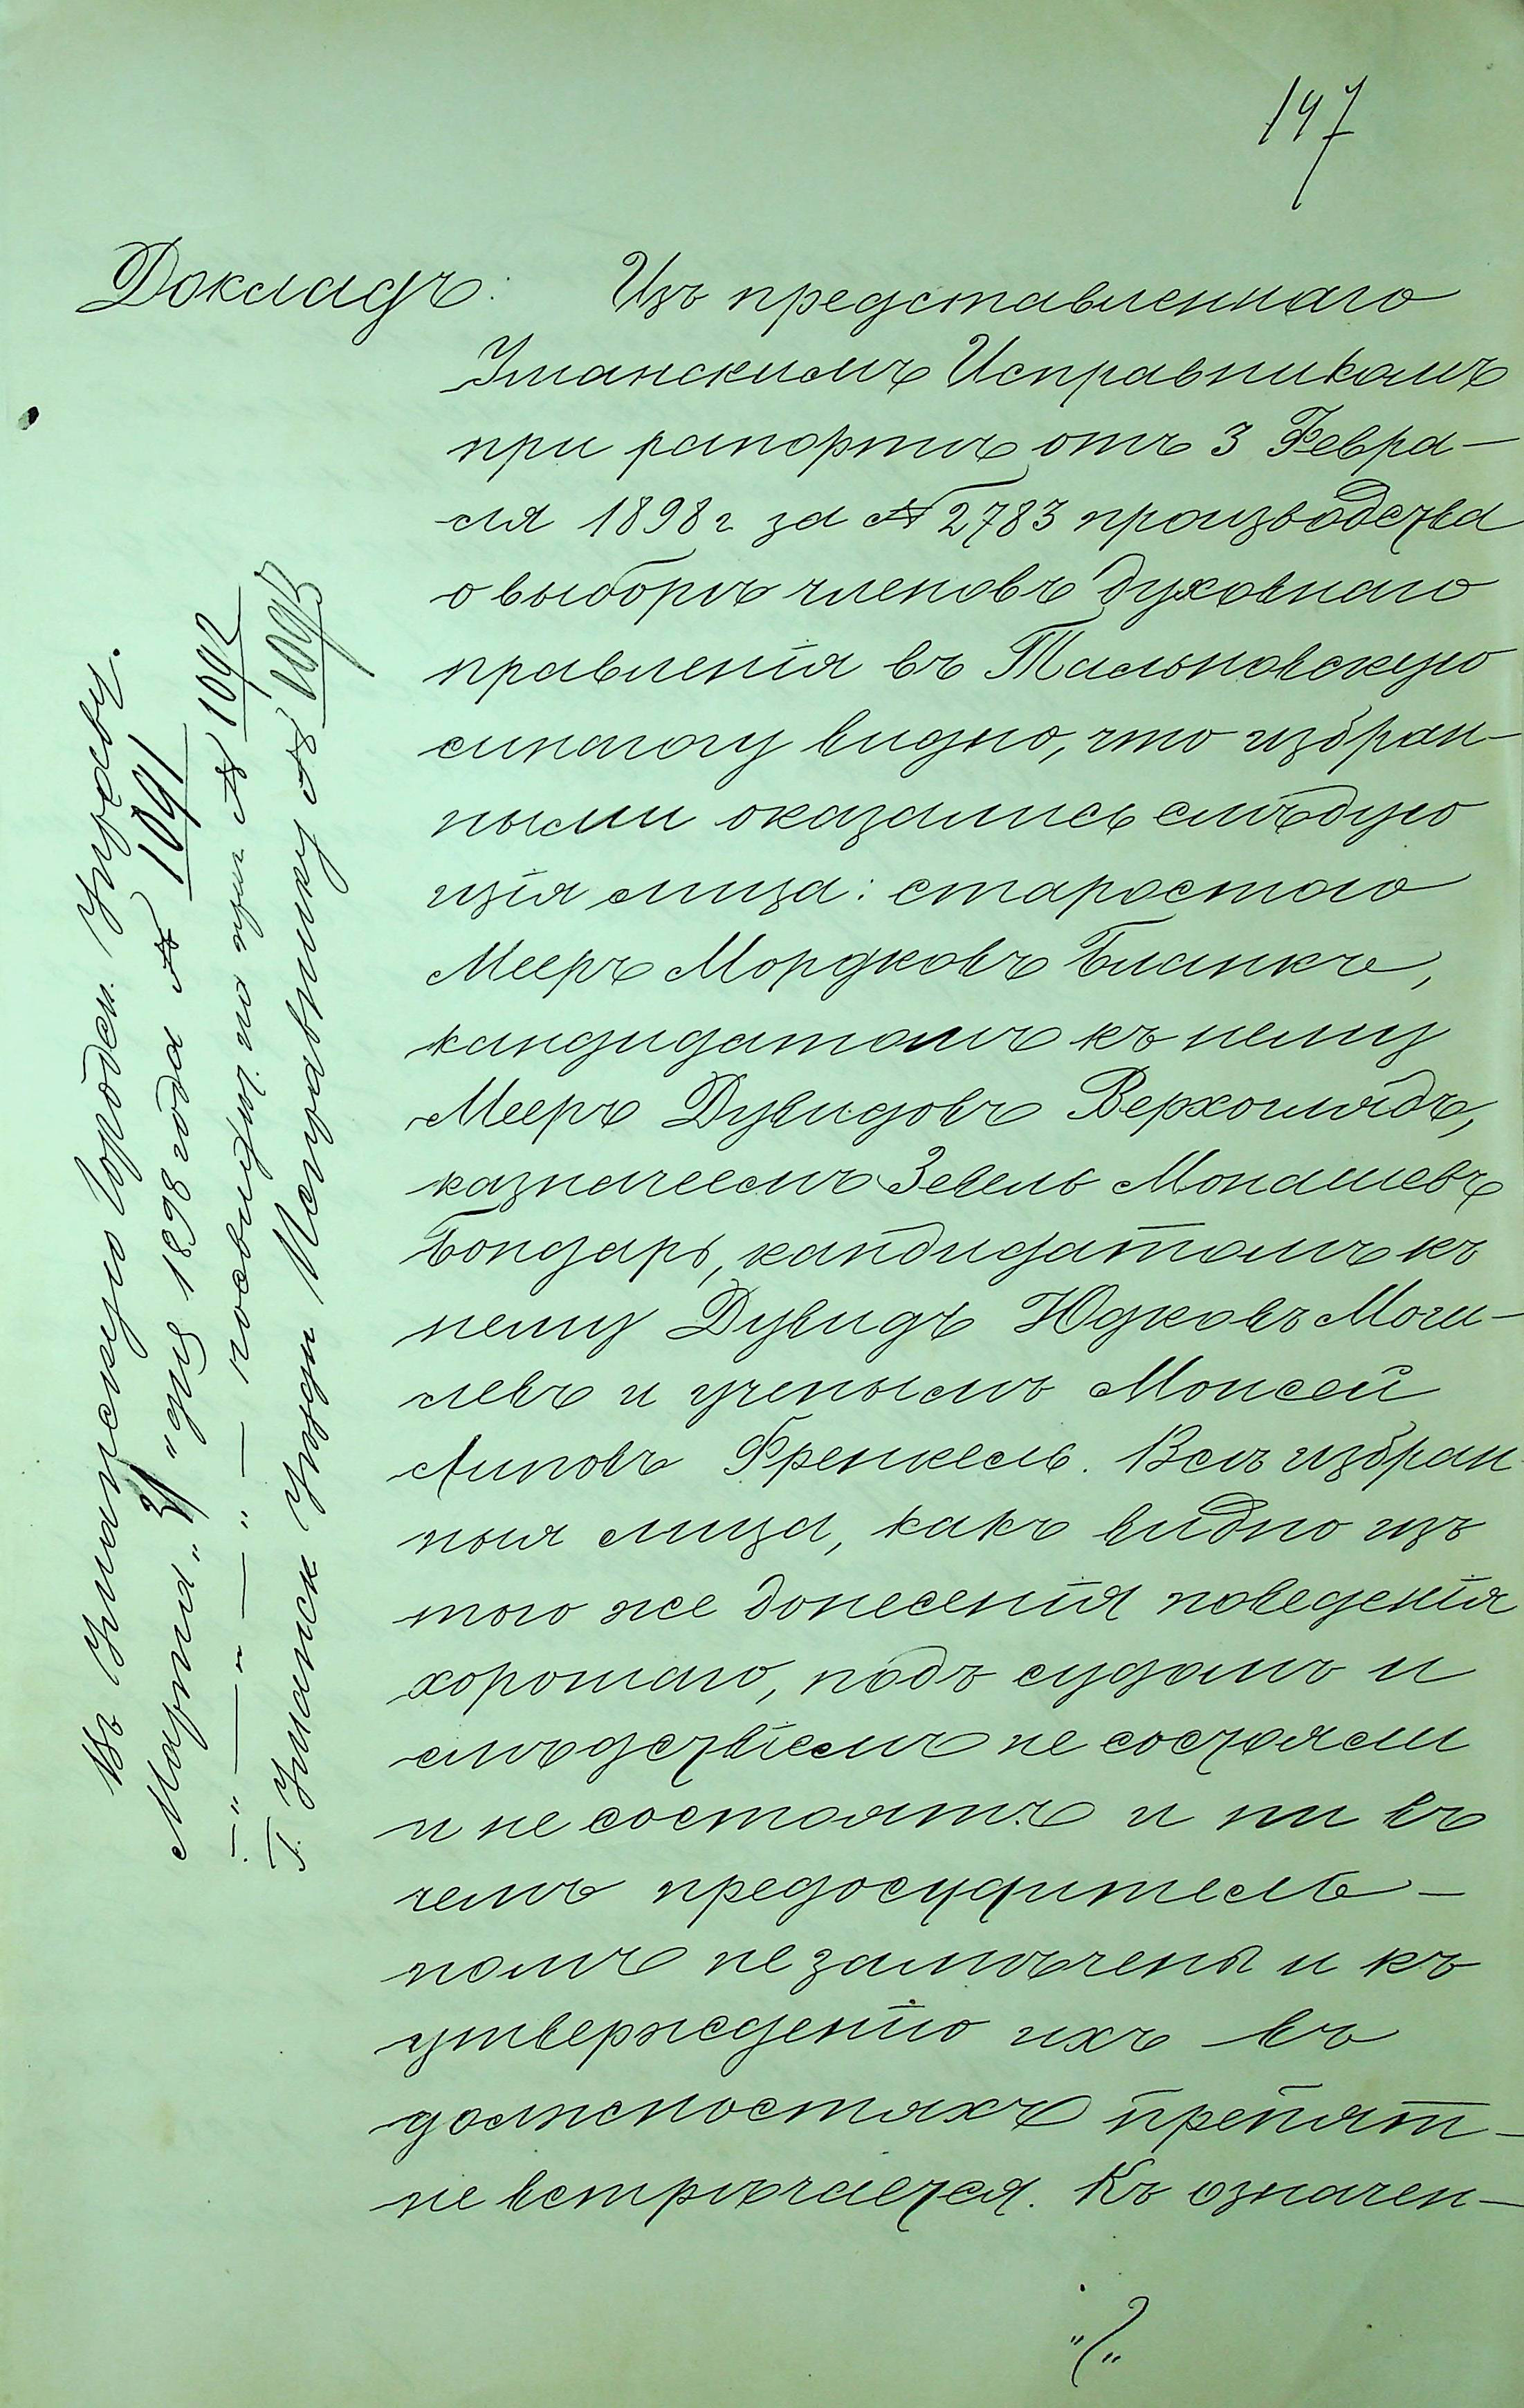 147
Докладъ: Изъ представленнаго
Уманскимъ Исправникомъ
при рапортѣ отъ 3 Февра-
ля 1898 г за № 2783 производства
о выборѣ членовъ духовнаго
правленія въ Тальновскую
синагогу видно, что избран-
ными оказались слѣдую
щія лица: старостою
Мееръ Мордковъ Бланкъ,
кандидатомъ къ нему
Мееръ Дувидовъ Верхоглядъ,
казначеемъ Зевель Монашевъ
Бондарь, кандидатомъ къ
нему Дувидъ Юдковъ Моги-
левъ и ученымъ Моисей
Липовъ Френкель. Всѣ избран
ныя лица, какъ видно изъ
того же донесенія поведенія
хорошаго, подъ судомъ и
слѣдствіемъ не состояли
и не состоятъ и ни въ
чемъ предосудитель-
номъ не замѣчены и къ
утвержденію ихъ въ
должностяхъ препят-
не встрѣчается. Къ означен-
Въ Уманскую Городск. Управу.
Марта "31" дня 1898 года № 1091
№ 1092
Г. Уманск Уѣздн Исправнику № 1093